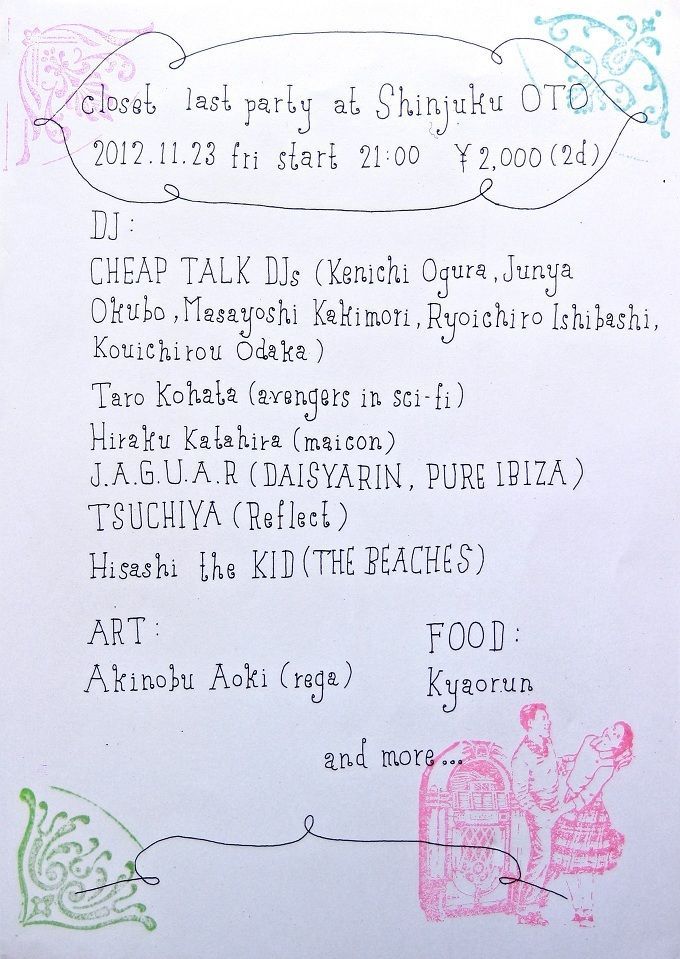 closet last party at Shinjuku OTO
2012.11.23 fri start 21:00 ¥2,000(2d)
DJ:
CHEAP TALK DJs (Kenichi Ogura, Junya
Okubo, Masayoshi Kakimori, Ryoichiro Ishibashi,
Kouichirou Odaka)
Taro Kohata (avengers in sci-fi)
Hiraku Katahira (maicon)
J.A.G.U.A.R (DAISYARIN, PURE IBIZA)
TSUCHIYA (Reflect)
Hisashi the KID (THE BEACHES)
ART:
Akinobu Aoki (rega)
FOOD:
Kyaorun
and more...